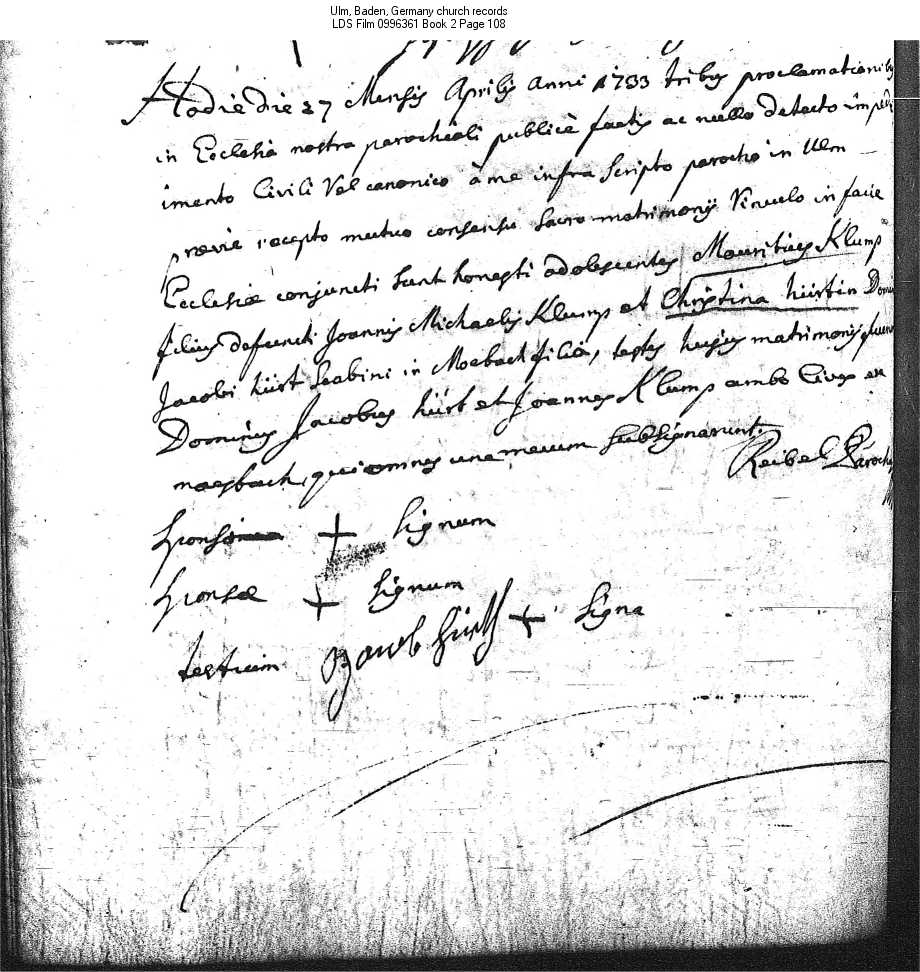 Ulm, Baden, Germany church records
LDS Film 0996361 Book 2 Page 108
Hodie die 27 Mensis Aprilis anni 1733 tribus proclamationibus
in Ecclesia nostra parochiali publicè factis ac nullo detecto imped
imento Civili Vel canonico à me infra Scripto parocho in Ulm
prævie recepto mutuo consensu Sacro matrimonij Vinculo in facie
Ecclesiæ conjuncti Sunt honesti adolescentes Mauritius Klump
filius defuncti Joannis Michaelis Klump et Christina hürstin
Jacobi hürst Scabini in Mosbach filia, testes hujus matrimonij
Dominus Jacobus hürst et Joannes Klump ambo Cives ex
maesbach, qui omnes una mecum Subsignarunt.
Reibel Parochus
Sponsi + Signum
Sponsæ + Signum
testium Jacob hürst + Signa